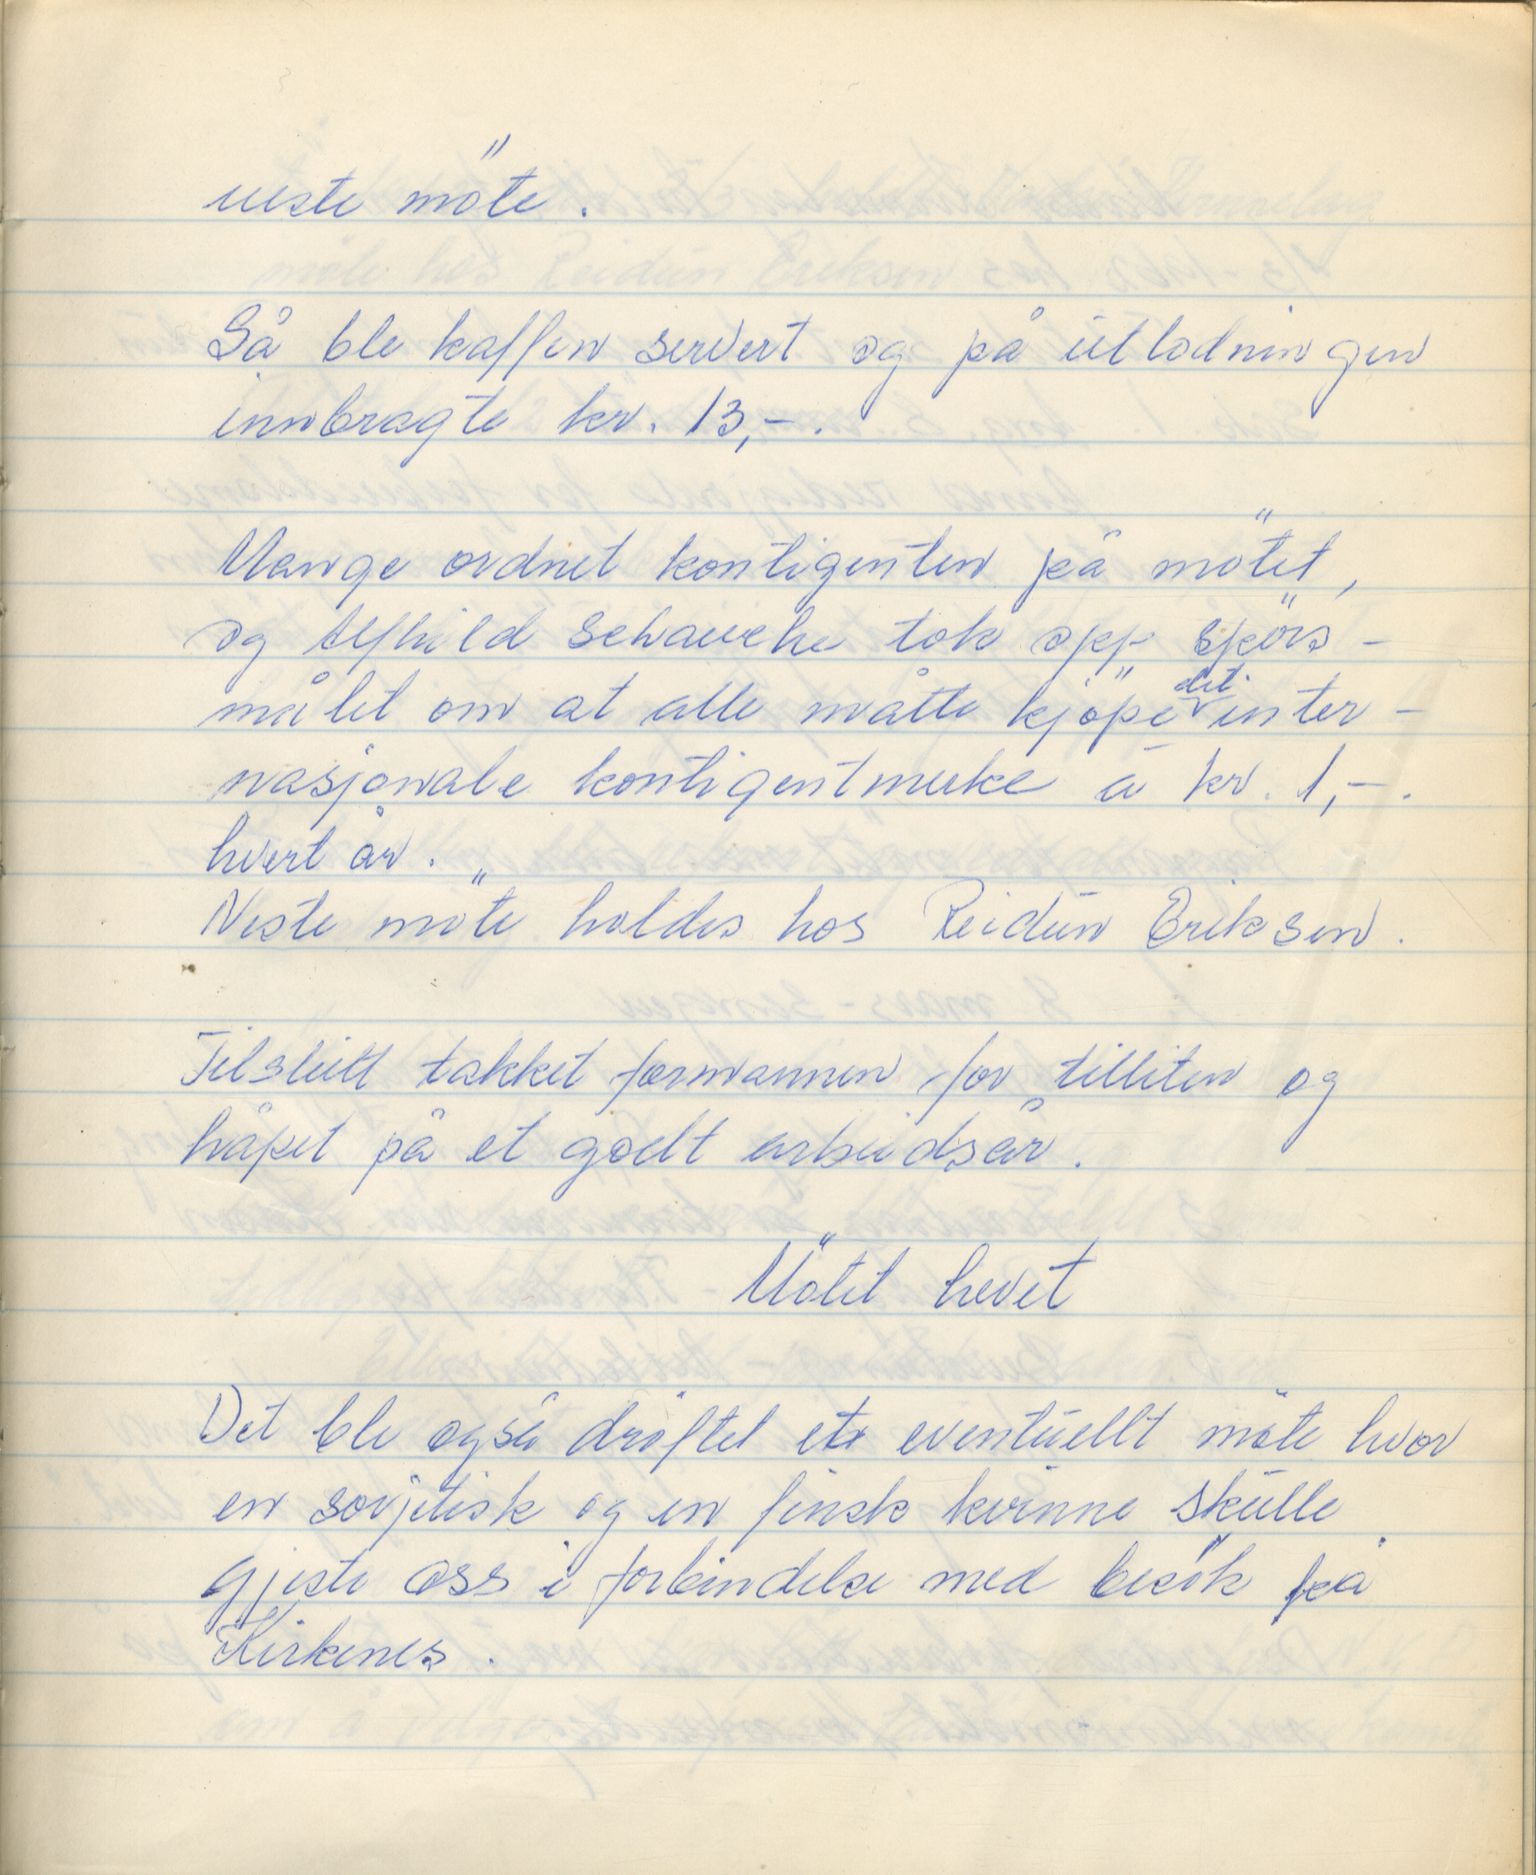 neste möte.
Så ble kaffen servert og på utlodningen
innbragte kr. 13,-.
Mange ordnet kontigenten på mötet,
og Alfhild Schancke tok opp spörs-
målet om at alle måtte kjöpe det inter-
nasjonale kontigentmerke á kr. 1,-.
hvert år.
Neste möte holdes hos Reidun Eriksen.
Tilslutt takket formannen for tilliten og
håpet på et godt arbeidsår.
Mötet hevet
Det ble også dröftet et eventuellt möte hvor
en sovjetisk og en finsk kvinne skulle
gjeste oss i forbindelse med besök på
Kirkenes.